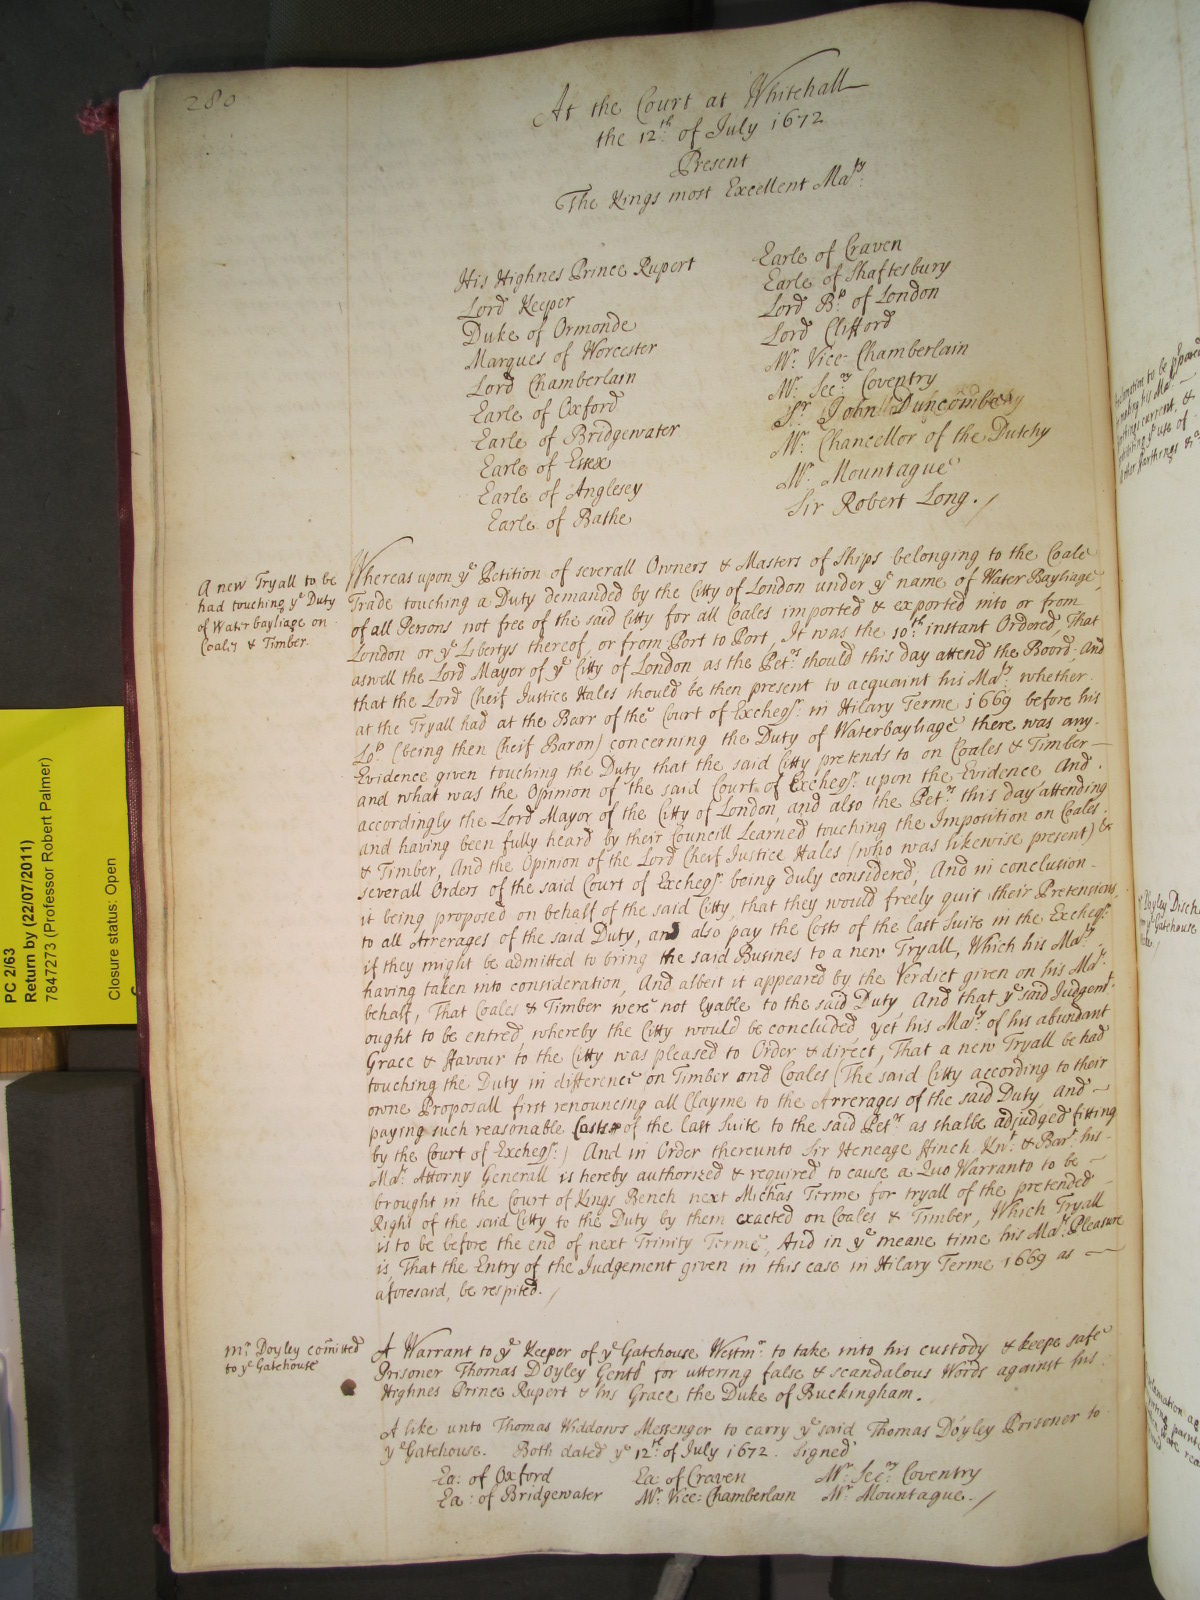 280
At the Court at Whitehall
the 12th of July 1672
Present
The Kings most Excellent Maty:
His Highnes Prince Rupert
Lord Keeper
Duke of Ormonde
Marques of Worcester
Lord Chamberlain
Earle of Oxford
Earle of Bridgewater
Earle of Essex
Earle of Anglesey
Earle of Bathe
Earle of Craven
Earle of Shaftesbury
Lord Bp of London
Lord Clifford
Mr. Vice-Chamberlain
Mr. Secry Coventry
Sr. John Duncombe
Mr. Chancellor of the Dutchy
Mr. Mountague
Sir Robert Long. /
A new Tryall to be
had touching ye Duty
of Waterbayliage on
Coales & Timber.
Whereas upon ye Petition of severall Owners & Masters of Ships belonging to the Coale
Trade touching a Duty demanded by the Citty of London under ye name of Water Bayliage,
of all Persons not free of the said Citty for all Coales imported & exported into or from
London or ye Libertys thereof, or from Port to Port, It was the 10th: instant Ordered, That
aswell the Lord Mayor of ye Citty of London as the Petrs should this day attend the Boord, And
that the Lord Cheif Justice Hales should be then present to acquaint his Maty: whether
at the Tryall had at the Barr of the Court of Excheqr: in Hilary Terme 1669 before his
Lop: (being then Cheif Baron) concerning the Duty of Waterbayliage there was any
Evidence given touching the Duty that the said Citty pretends to on Coales & Timber
and what was the Opinion of the said Court of Excheqr: upon the Evidence And
accordingly the Lord Mayor of the Citty of London, and also the Petrs this day attending
and having been fully heard by their Councill Learned touching the Imposition on Coales
& Timber, And the Opinion of the Lord Cheif Justice Hales (who was likewise present) &
severall Orders of the said Court of Excheqr: being duly considered, And in conclusion
it being proposed on behalf of the said Citty, that they would freely quit their Pretensions
to all Arrerages of the said Duty, and also pay the Costs of the last Suite in the Excheqr:
if they might be admitted to bring the said Busines to a new Tryall, Which his Maty:
having taken into consideration, And albeit it appeared by the Verdict given on his Mats:
behalf, That Coales & Timber were not lyable to the said Duty, And that ye said Judgemt:
ought to be entred, whereby the Citty would be concluded, yet his Maty: of his abundant
Grace & ffavour to the Citty was pleased to Order & direct, That a new Tryall be had
touching the Duty in difference on Timber and Coales (The said Citty according to their
owne Proposall first renouncing all Clayme to the Arrerages of the said Duty, and
paying such reasonable Costs of the last Suite to the said Petrs as shalbe adjudged fitting
by the Court of Excheqr:) And in Order thereunto Sir Heneage ffinch Knt: & Bart: his
Mats: Attorny Generall is hereby authorized & required to cause a Quo Warranto to be
brought in the Court of Kings Bench next Michas Terme for tryall of the pretended
Right of the said Citty to the Duty by them exacted on Coales & Timber, Which Tryall
is to be before the end of next Trinity Terme, And in ye meane time his Mats: Pleasure
is, That the Entry of the Judgement given in this case in Hilary Terme 1669 as
aforesaid, be respited. /
Mr. Doyley comitted
to ye Gatehouse
A Warrant to ye Keeper of ye Gatehouse Westmr: to take into his custody & keepe safe
Prisoner Thomas D'Oyley Gent for uttering false & scandalous Words against his
Highnes Prince Rupert & his Grace the Duke of Buckingham.
A like unto Thomas Widdows Messenger to carry ye said Thomas Doyley Prisoner to
ye Gatehouse. Both dated ye 12th: of July 1672. Signed
Ea: of Oxford Ea: of Craven Mr. Secry: Coventry
Ea: of Bridgewater Mr. Vice-Chamberlain Mr. Mountague. /
PC 2/63
Return by (22/07/2011)
7847273 (Professor Robert Palmer)
Closure status: Open